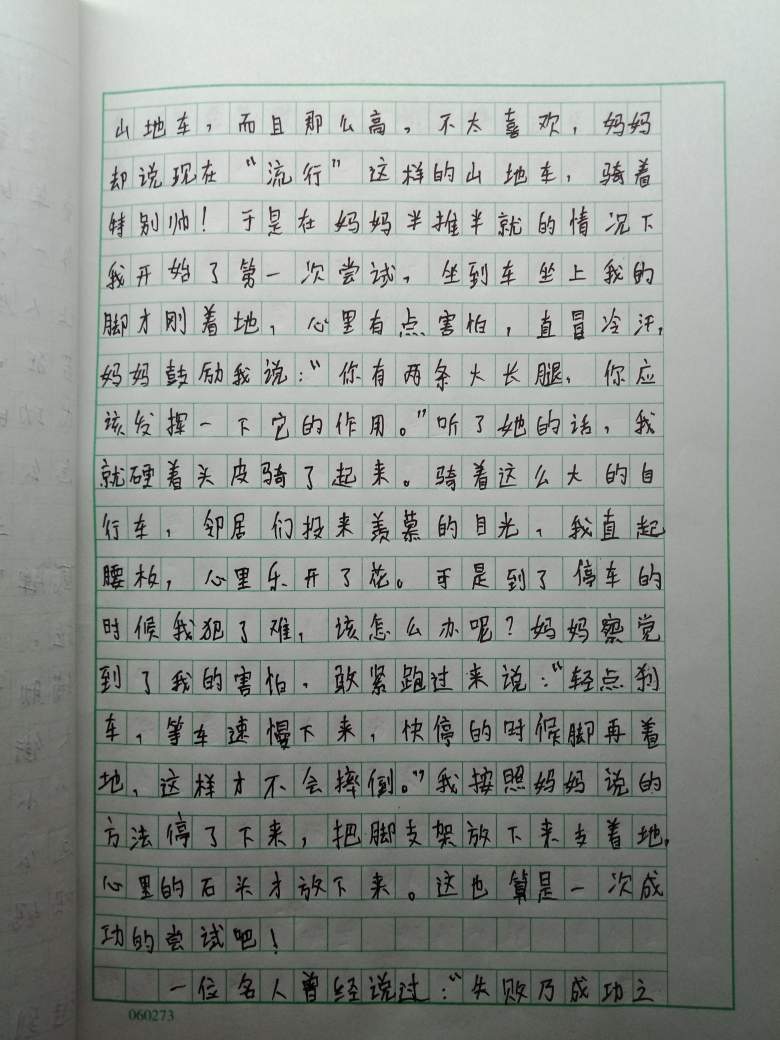 山地车，而且那么高，不太喜欢，妈妈
却说现在“流行”这样的山地车，骑着
特别帅！于是在妈妈半推半就的情况下
我开始了第一次尝试，坐到车坐上我的
脚才刚着地，心里有点害怕，直冒冷汗，
妈妈鼓励我说：“你有两条大长腿，你应
该发挥一下它的作用。”听了她的话，我
就硬着头皮骑了起来。骑着这么大的自
行车，邻居们投来羡慕的目光，我直起
腰板，心里乐开了花。于是到了停车的
时候我犯了难，该怎么办呢？妈妈察觉
到了我的害怕，敢紧跑过来说：“轻点刹
车，等车速慢下来，快停的时候脚再着
地，这样才不会摔倒。”我按照妈妈说的
方法停了下来，把脚支架放下来支着地，
心里的石头才放下来。这也算是一次成
功的尝试吧！
一位名人曾经说过：“失败乃成功之
060273